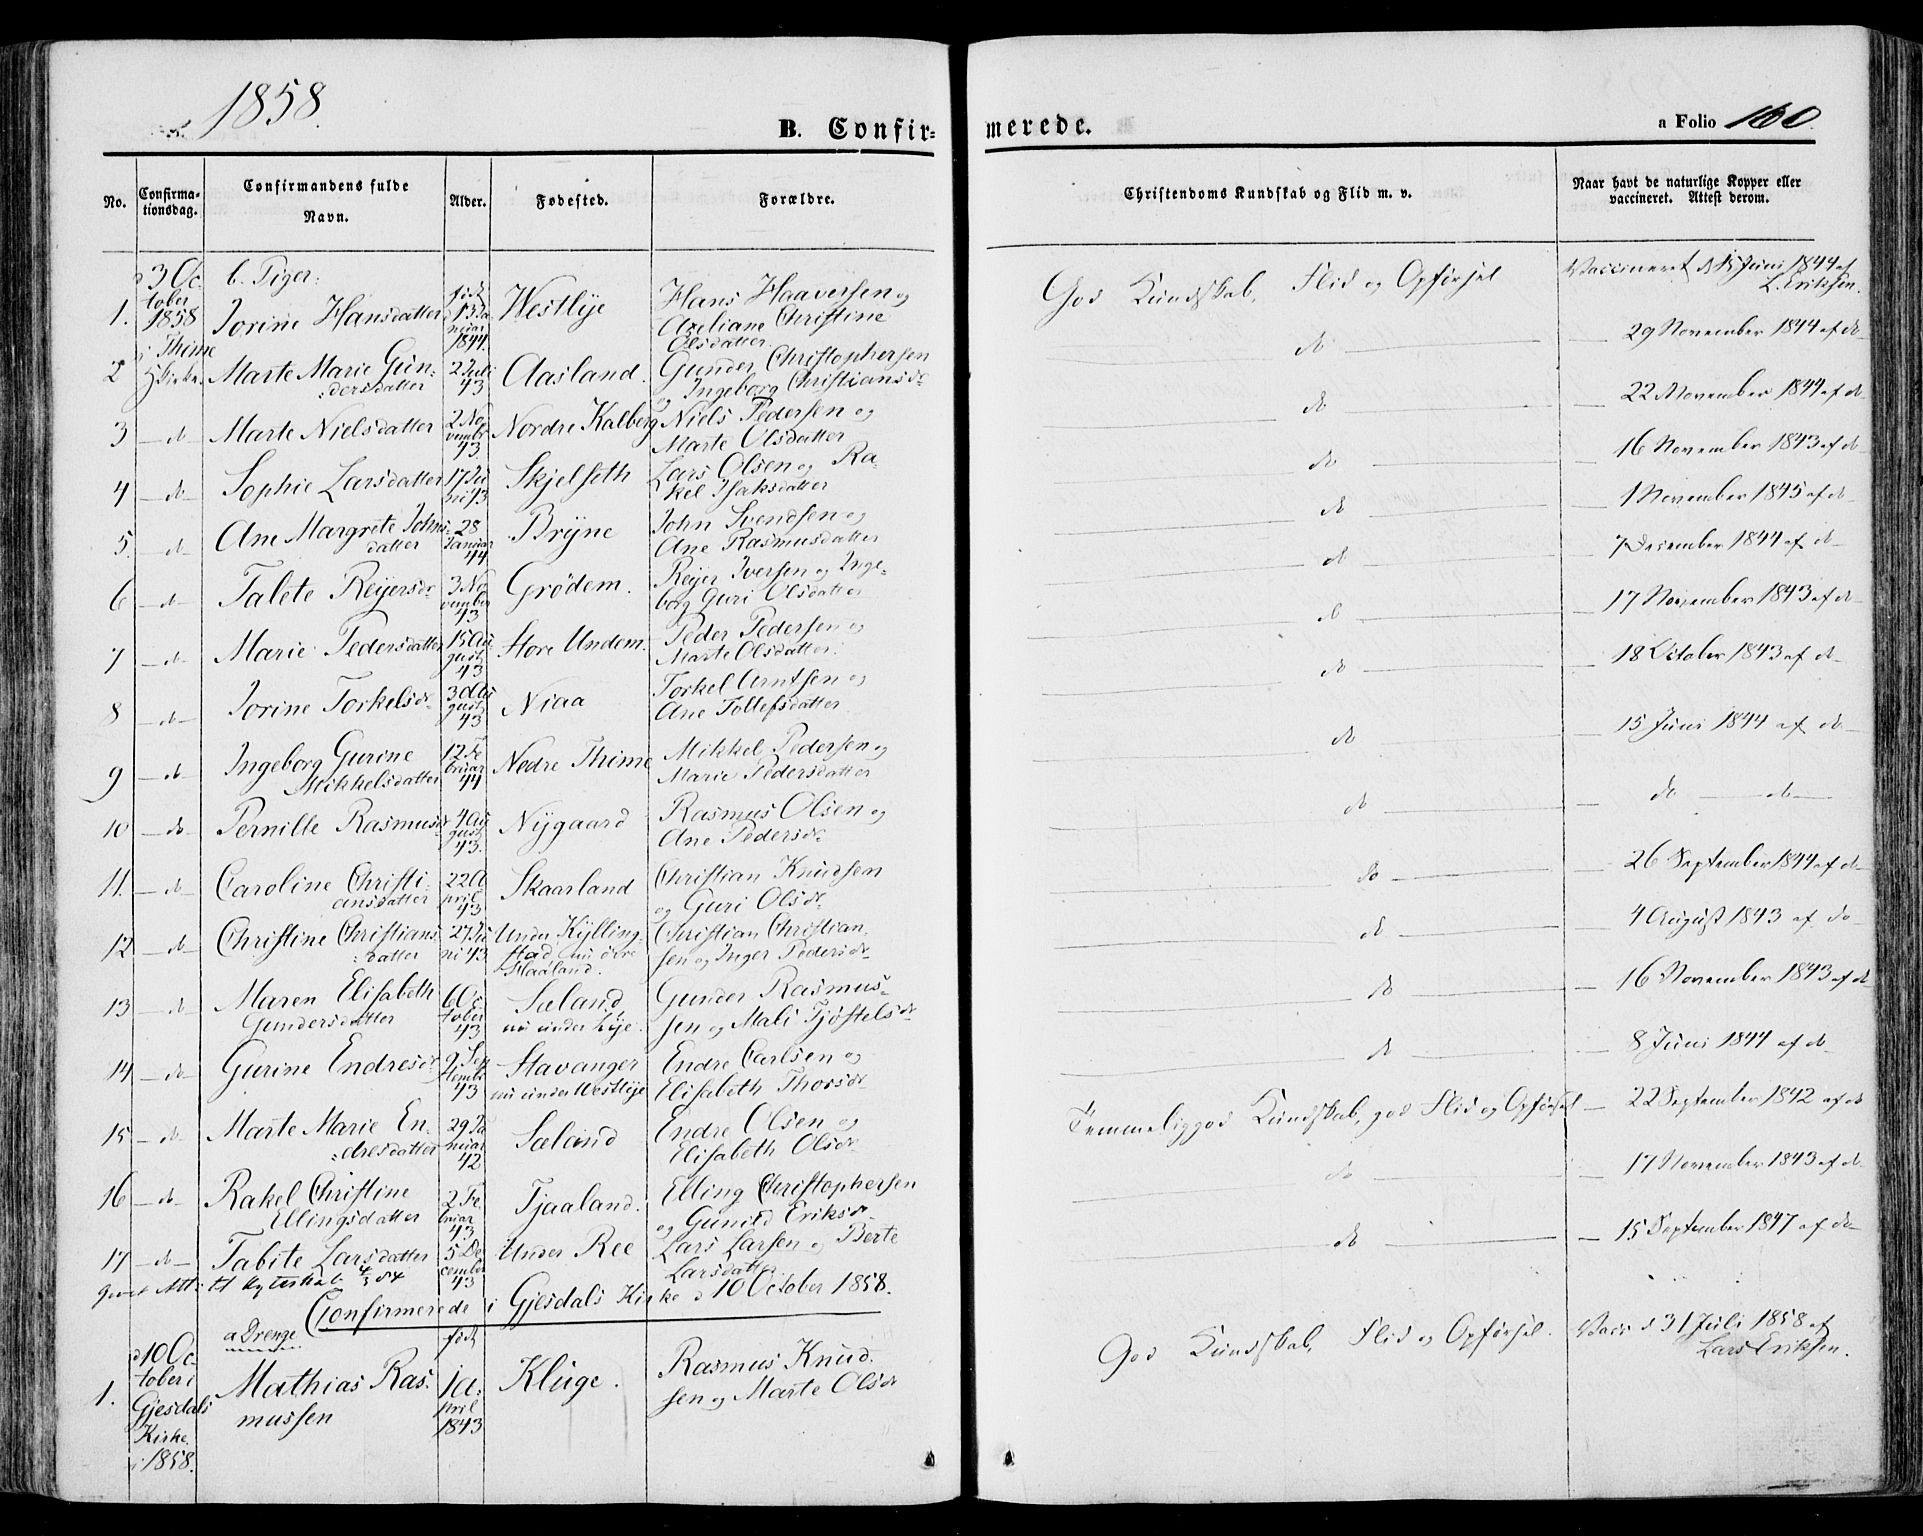 1858.
B. Confirmerede.
a Folio 160.
No. Confirmationsdag. Confirmandens fulde Navn. Alder. Fødested. Forældre. Christendoms Kundskab og Flid m. v. Naar havt de naturlige Kopper eller vaccineret. Attest derom.
b. Piger:
1. d 3 October 1858 i Thime Kirke Jorine Hansdatter født 13 Januar 1844. Westlÿe Hans Haaversen og Axeliane Christine Olsdatter. God Kundskab, Flid og Opførsel Vaccineret d 15 Juni 1844 af L. Eriksen.
2 Marte Marie Gundersdatter 2 Juli 43 Aasland. Gunder Christophersen og Ingeborg Christiansdr do 29 November 1844 af do
3 do Marte Nielsdatter 2 November 43. Nordre Kalberg Niels Pedersen og Marte Olsdatter do 22 November 1844 af do
4 do Sophie Larsdatter 17 Juni 43 Skjelseth Lars Olsen og Rakel Isaksdatter do 16 November 1843 af do
5. do Ane Margrete Johnsdatter 28 Januar 44 Brÿne John Svendsen og Ane Rasmusdatter do 1 November 1845 af do
6 do Talete Reÿersdr 3 November 43 Grødem. Reÿer Iversen og Ingeborg Guri Olsdatter do 7 December 1844 af do
7 do Marie Pedersdatter 15 August 43 Store Undem. Peder Pedersen og Marte Olsdatter. do 17 November 1843 af do
8 do Jorine Torkelsdr 30 August 43 Niaa Torkel Arntsen og Ane Tollefsdatter do 18 October 1843 af do
9 do Ingeborg Gurine Mikkelsdatter 12 Februar 44 Nedre Thime Mikkel Pedersen og Marie Pedersdatter do 15 Juni 1844 af do
10 do Pernille Rasmusdr 4 August 43. Nÿgaard Rasmus Olsen og Ane Pedersdr do do do
11. do Caroline Christiansdatter 22 April 43 Skaarland Christian Knudsen og Guri Olsdr do 26 September 1844 af do
12 do Christine Christiansdatter 27 Juni 43. Under Kÿllingstad, nu øvre Haaland. Christian Christiansen og Inger Pedersdr do 4 August 1843 af do
13 do Maren Elisabeth Gundersdatter 6 October 43 Sæland nu under Lÿe. Gunder Rasmussen og Mali Tjøstelsdr do 16 November 1843 af do
14 do Gurine Endresdr 9 September 43 Stavanger nu under Westlÿe Endre Carlsen og Elisabeth Thorsdr do 8 Juni 1844 af do
15 do Marte Marie Endresdatter 29 Januar 42 Sæland Endre Olsen og Elisabeth Olsdr Temmelig god Kundskab, god Flid og Opførsel 22 September 1842 af do
16 do Rakel Christine Ellingsdatter 2 Februar 43 Tjaaland. Elling Christophersen og Gunild Eriksdr do 17 November 1843 af do
17 do Tabite Larsdatter 5 December 43 Under Ree Lars Larsen og Berte Larsdatter do 15 September 1847 af do
Confirmerede i Gjesdals Kirke d 10 October 1858.
a Drenge
1. d 10 October i Gjesdals Kirke i 1858. Mathias Rasmussen født 1 April 1843 Kluge. Rasmus Knudsen og Marte Olsdr God Kundskab, Flid og Opførsel. Vacc d 31 Juli 1858 af Lars Eriksen.